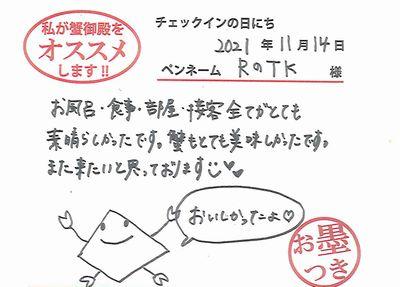 私が蟹御殿を
オススメ
します!!
チェックインの日にち
2021 年 11 月 14 日
ペンネーム RのTK 様
お風呂・食事・部屋・接客全てがとても
素晴らしかったです。蟹もとても美味しかったです。
また来たいと思っております
おいしかったよ♡
お墨
つき